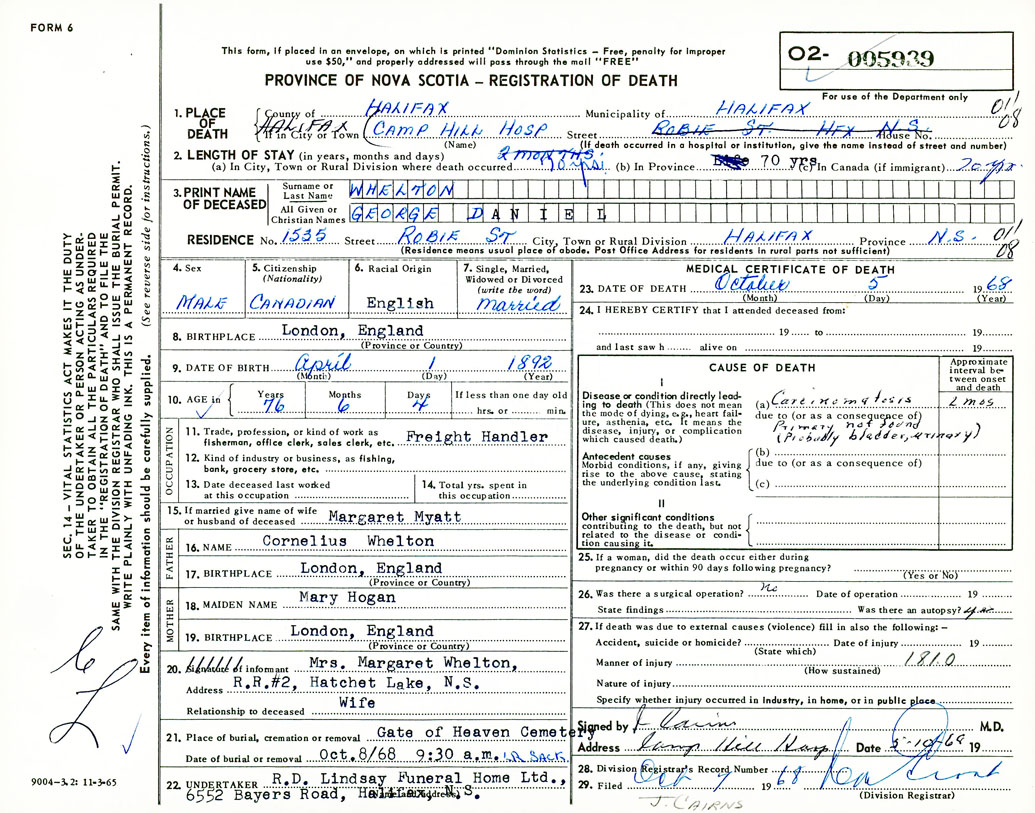 FORM 6
This form, if placed in an envelope, on which is printed "Dominion Statistics – Free, penalty for improper
use $50," and properly addressed will pass through the mail "FREE"
PROVINCE OF NOVA SCOTIA – REGISTRATION OF DEATH
O2- 005939
For use of the Department only
011
08
1. PLACE OF DEATH
County of HALIFAX Municipality of HALIFAX
HALIFAX
If in City or Town CAMP HILL HOSP Street ROBIE ST. HFX N.S. House No.
(Name) (If death occurred in a hospital or institution, give the name instead of street and number)
2. LENGTH OF STAY (in years, months and days) 2 MONTHS.
(a) In City, Town or Rural Division where death occurred 70 yrs. (b) In Province 70 yrs. (c) In Canada (if immigrant) 70 yrs
3. PRINT NAME OF DECEASED
Surname or Last Name WHELTON
All Given or Christian Names GEORGE DANIEL
RESIDENCE No. 1535 Street ROBIE ST City, Town or Rural Division HALIFAX Province N.S. 011
08
(Residence means usual place of abode. Post Office Address for residents in rural parts not sufficient)
4. Sex
MALE
5. Citizenship
(Nationality)
CANADIAN
6. Racial Origin
English
7. Single, Married,
Widowed or Divorced
(write the word)
married
8. BIRTHPLACE London, England
(Province or Country)
9. DATE OF BIRTH April 1 1892
(Month) (Day) (Year)
10. AGE in Years Months Days If less than one day old
76 6 4 hrs. or min.
OCCUPATION
11. Trade, profession, or kind of work as
fisherman, office clerk, sales clerk, etc. Freight Handler
12. Kind of industry or business, as fishing,
bank, grocery store, etc.
13. Date deceased last worked
at this occupation
14. Total yrs. spent in
this occupation
15. If married give name of wife
or husband of deceased Margaret Myatt
FATHER
16. NAME Cornelius Whelton
17. BIRTHPLACE London, England
(Province or Country)
MOTHER
18. MAIDEN NAME Mary Hogan
19. BIRTHPLACE London, England
(Province or Country)
20. Signature of informant Mrs. Margaret Whelton,
Address R.R.#2, Hatchet Lake, N.S.
Relationship to deceased Wife
21. Place of burial, cremation or removal Gate of Heaven Cemetery
Date of burial or removal Oct.8/68 9:30 a.m. LR SACK.
22. UNDERTAKER R.D. Lindsay Funeral Home Ltd.,
6552 Bayers Road, Halifax, N.S.
(Name and Address)
MEDICAL CERTIFICATE OF DEATH
23. DATE OF DEATH October 5 1968
(Month) (Day) (Year)
24. I HEREBY CERTIFY that I attended deceased from:
19 to 19
and last saw h alive on 19
CAUSE OF DEATH
Approximate
interval be-
tween onset
and death
I
Disease or condition directly lead-
ing to death (This does not mean
the mode of dying, e.g., heart fail-
ure, asthenia, etc. It means the
disease, injury, or complication
which caused death.)
(a) Carcinomatosis 2 mos
due to (or as a consequence of)
Primary not found
(Probably bladder, urinary)
Antecedent causes
Morbid conditions, if any, giving
rise to the above cause, stating
the underlying condition last.
(b)
due to (or as a consequence of)
(c)
II
Other significant conditions
contributing to the death, but not
related to the disease or condi-
tion causing it.
25. If a woman, did the death occur either during
pregnancy or within 90 days following pregnancy?
(Yes or No)
26. Was there a surgical operation? no Date of operation 19
State findings Was there an autopsy?
27. If death was due to external causes (violence) fill in also the following: –
Accident, suicide or homicide? Date of injury 19
(State which)
Manner of injury 1810
(How sustained)
Nature of injury
Specify whether injury occurred in industry, in home, or in public place
Signed by J Cairns M.D.
Address Camp Hill Hosp Date 5-10-68 19
28. Division Registrar's Record Number
29. Filed Oct 7 19 68
(Division Registrar)
J. CAIRNS
SEC. 14 – VITAL STATISTICS ACT MAKES IT THE DUTY
OF THE UNDERTAKER OR PERSON ACTING AS UNDER-
TAKER TO OBTAIN ALL THE PARTICULARS REQUIRED
IN THE "REGISTRATION OF DEATH" AND TO FILE THE
SAME WITH THE DIVISION REGISTRAR WHO SHALL ISSUE THE BURIAL PERMIT.
WRITE PLAINLY WITH UNFADING INK. THIS IS A PERMANENT RECORD.
Every item of information should be carefully supplied. (See reverse side for instructions.)
9004–3.2: 11-3-65